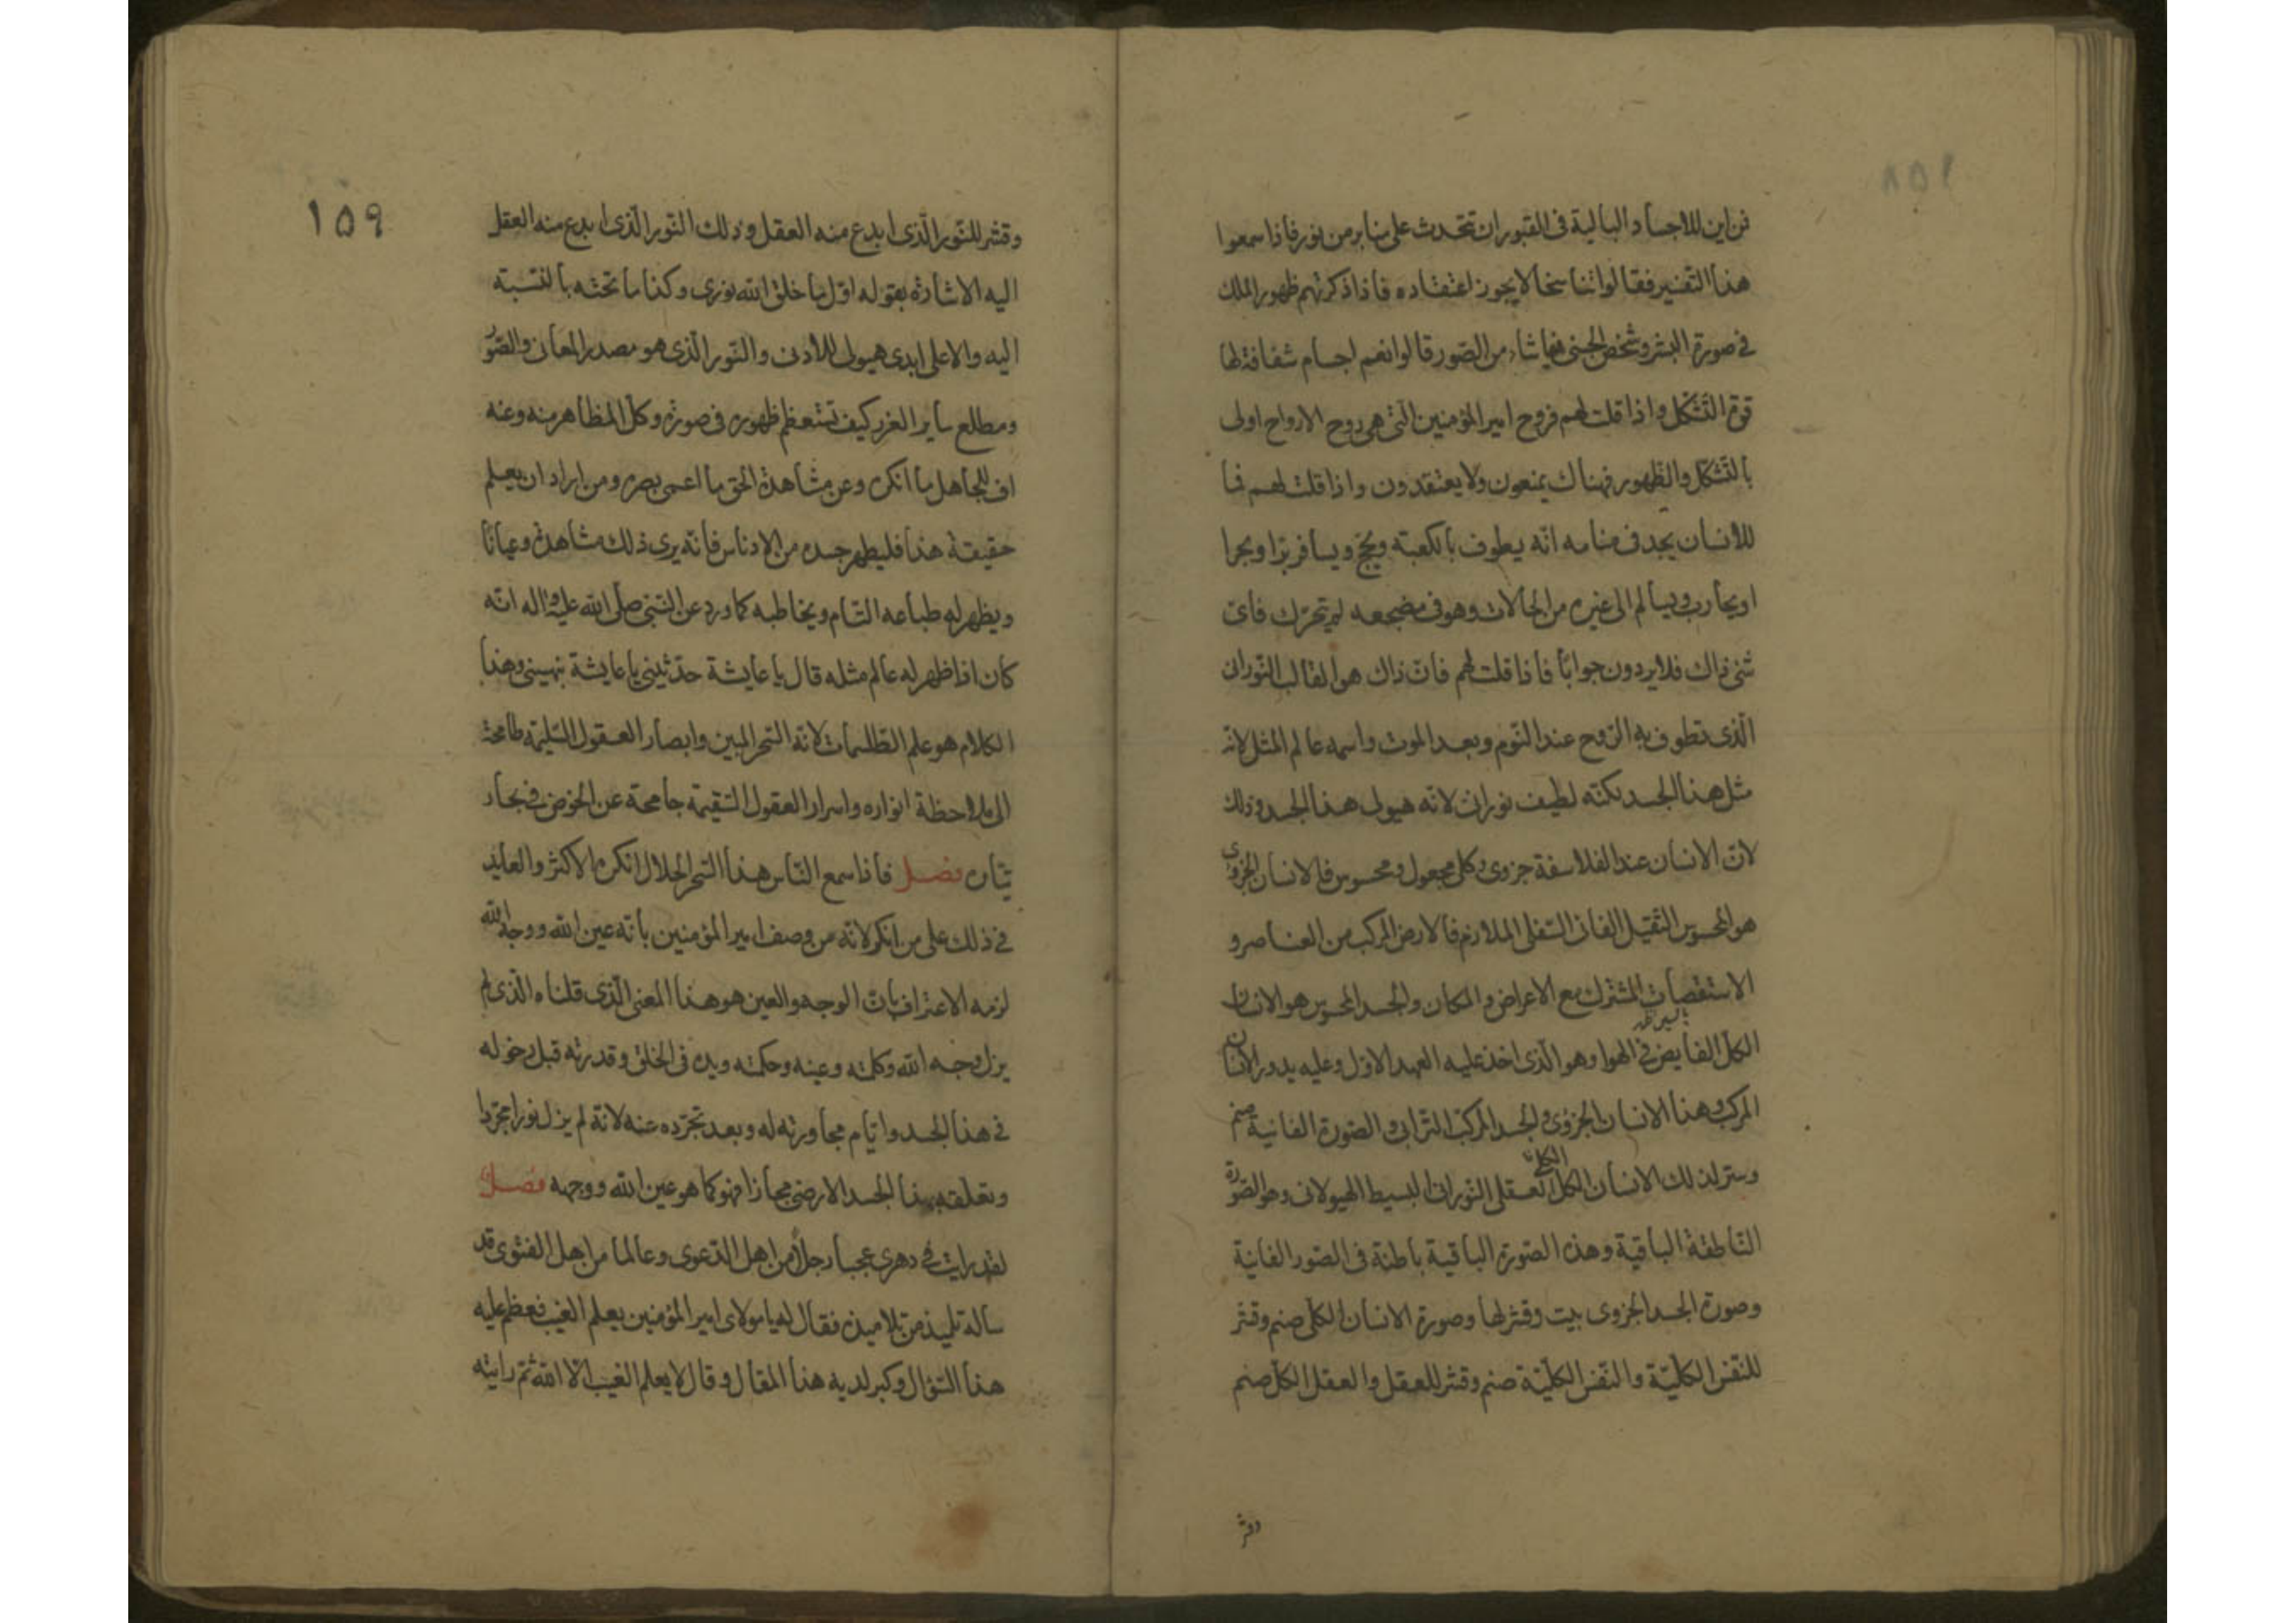 فمن اين للاجساد البالية فى القبور ان تتحدث على منابر من نور فاذا سمعوا
هذا التفسير فقالوا تناسخا لا يجوز اعتقاده فاذا ذكرتهم ظهور الملك
فى صورة البشر وتشخص الجنى فيما شاء من الصور قالوا نعم اجسام شفافة لها
قوة التشكل واذا قلت لهم فروح امير المؤمنين التى هى روح الارواح اولى
بالتشكل والظهور فهناك يمنعون ولا يعتقدون واذا قلت لهم فما
للانسان يجد فى منامه انّه يطوف بالكعبته ويحج ويسافر برّا وبحرا
او يحارب ويسالم الى غيره من الحالات وهو فى مضجعه لم يتحرّك فاىّ
شئ ذاك فلا يردون جوابًا فاذا قلت لهم فان ذاك هو القالب النّورانى
الّذى تطوف به الرّوح عند النّوم وبعد الموت واسمه عالم المثل لانه
مثل هذا الجسد لكنّه لطيف نورانى لانّه هيولى هذا الجسد وذلك
لانّ الانسان عند الفلاسفة جزوى وكلى مجعول ومحسوس فالانسان الجزوى
هو المحسوس الثقيل الفانى السّفلى الملازم فالارض المركب من العناصر و
الاستقصات المشترك مع الاعراض والمكان والجسد المحسوس هو الانسان
الكلّ الفايض فى الهوا وهو الّذى اخذ عليه العهد الاوّل وعليه يدور الانسان
المركب وهذا الانسان الجزوى والجسد المركب الترابى والصورة الفانية صنم
وستر لذلك الانسان الكلى العقلى النّورانى البسيط الهيولانى وهو الصّورة
النّاطقة الباقية وهذه الصّورة الباقية باطنة فى الصّور الفانية
وصورة الجسد الجزوى بيت وقشر لها وصورة الانسان الكلّى صنم وقشر
للنّفس الكلّيّة والنّفس الكلّيّة صنم وقشر للعقل والعقل الكلّ صنم
وقشر
١٥٩
وقشر للنّور الّذى ابدع منه العقل وذلك النّور الّذى ابدع منه العقل
اليه الاشارة بقوله اوّل ما خلق الله نورى وكذا ما تحته بالنّسبته
اليه والاعلى ابدى هيولى للادنى والنّور الّذى هو مصدر المعانى والصّور
ومطلع ساير الغرر كيف تستعظم ظهوره فى صورة وكلّ المظاهر منه وعنه
اف للجاهل ما انكره وعن مشاهدة الحق ما اعمى بصره ومن اراد ان يعلم
حقيقة هذا فليطهر جسده من الادناس فانّه يرى ذلك مشاهدة وعيانًا
ويظهر له طباعه التّام ويخاطبه كما ورد عن النّبى صلّى الله عليه واله انّه
كان اذا ظهر له عالم مثله قال يا عايشة حدّثينى يا عايشة نهيبنى وهذا
الكلام هو علم الطّلسمات لانّه السّحر المبين وابصار العقول السّليمة طامحة
الى ملاحظة انواره واسرار العقول السّقيمة جامحة عن الخوض فى بحار
تيّاره فصل فاذا سمع النّاس هذا السّحر الحلال انكره الاكثر والعايد
فى ذلك على من انكر لانّه من وصف امير المؤمنين بانّه عين الله ووجه الله
لزمه الاعتراف بانّ الوجه والعين هو هذا المعنى الّذى قلناه الّذى لم
يزل وجه الله وكلمته وعينه وحكمته ويده فى الخلق وقدرته قبل دخوله
فى هذا الجسد وايّام مجاورته له وبعد تجرّده عنه لانّه لم يزل نورا مجرّدا
وتعلّقه بهذا الجسد الارضى مجازا فهو كما هو عين الله ووجهه فصل
لقد رايت فى دهرى عجبا رجلًا من اهل الدّعوى وعالما من اهل الفتوى قد
ساله تلميذ من تلاميذه فقال له يا مولاى امير المؤمنين يعلم الغيب فعظم عليه
هذا السّؤال وكبر لديه هذا المقال وقال لا يعلم الغيب الّا الله ثم رايته